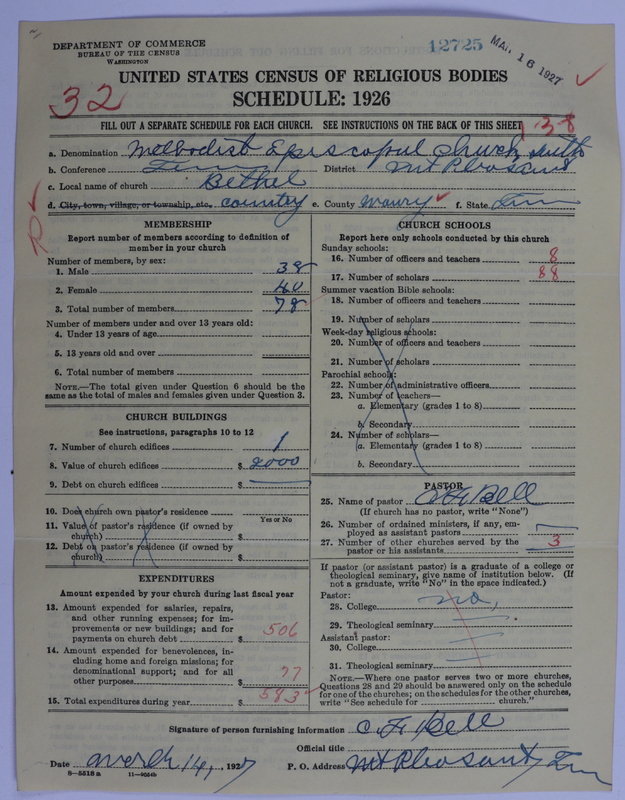 DEPARTMENT OF COMMERCE
BUREAU OF THE CENSUS
WASHINGTON
12725
MAR 16 1927
UNITED STATES CENSUS OF RELIGIOUS BODIES
SCHEDULE: 1926
32
FILL OUT A SEPARATE SCHEDULE FOR EACH CHURCH. SEE INSTRUCTIONS ON THE BACK OF THIS SHEET
1-38
a. Denomination Methodist Episcopal Church South
b. Conference Tenn District Mt Pleasant
c. Local name of church Bethel
d. City, town, village, or township, etc. country e. County Maury f. State Tenn
MEMBERSHIP
Report number of members according to definition of
member in your church
Number of members, by sex:
1. Male 38
2. Female 40
3. Total number of members 78
Number of members under and over 13 years old:
4. Under 13 years of age
5. 13 years old and over
6. Total number of members
NOTE.—The total given under Question 6 should be the
same as the total of males and females given under Question 3.
CHURCH BUILDINGS
See instructions, paragraphs 10 to 12
7. Number of church edifices 1
8. Value of church edifices $ 2000
9. Debt on church edifices $
10. Does church own pastor's residence
Yes or No
11. Value of pastor's residence (if owned by
church) $
12. Debt on pastor's residence (if owned by
church) $
EXPENDITURES
Amount expended by your church during last fiscal year
13. Amount expended for salaries, repairs,
and other running expenses; for im-
provements or new buildings; and for
payments on church debt $ 506
14. Amount expended for benevolences, in-
cluding home and foreign missions; for
denominational support; and for all
other purposes $ 77
15. Total expenditures during year $ 583
CHURCH SCHOOLS
Report here only schools conducted by this church
Sunday schools:
16. Number of officers and teachers 8
17. Number of scholars 88
Summer vacation Bible schools:
18. Number of officers and teachers
19. Number of scholars
Week-day religious schools:
20. Number of officers and teachers
21. Number of scholars
Parochial schools:
22. Number of administrative officers
23. Number of teachers—
a. Elementary (grades 1 to 8)
b. Secondary
24. Number of scholars—
a. Elementary (grades 1 to 8)
b. Secondary
PASTOR
25. Name of pastor C F Bell
(If church has no pastor, write "None")
26. Number of ordained ministers, if any, em-
ployed as assistant pastors
27. Number of other churches served by the
pastor or his assistants 3
If pastor (or assistant pastor) is a graduate of a college or
theological seminary, give name of institution below. (If
not a graduate, write "No" in the space indicated.)
Pastor:
28. College no,
29. Theological seminary
Assistant pastor:
30. College
31. Theological seminary
NOTE.—Where one pastor serves two or more churches,
Questions 28 and 29 should be answered only on the schedule
for one of the churches; on the schedules for the other churches,
write "See schedule for church."
Signature of person furnishing information C F Bell
Official title
Date March 14, 1927 P. O. Address Mt Pleasant, Tenn
8—5518 a 11—9054b